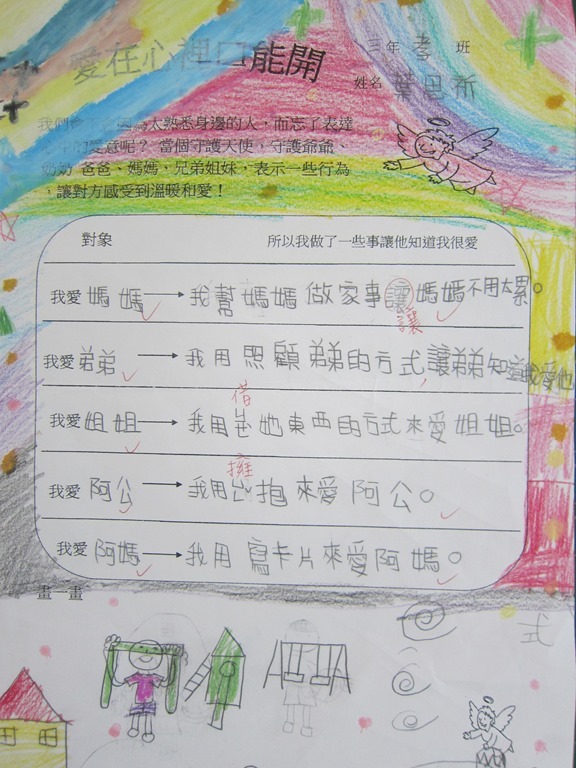 愛在心裡口能開
三年孝班
姓名 葉思
我們會 因為太熟悉身邊的人，而忘了表達
意呢？當個守護天使，守護爺爺、
奶奶、爸爸、媽媽、兄弟姐妹，表示一些行為
，讓對方感受到溫暖和愛！
對象 所以我做了一些事讓他知道我很愛
我愛 媽媽 → 我幫媽媽做家事讓媽媽不用太累。
讓
我愛 弟弟 → 我用照顧弟弟的方式，讓弟弟知道我愛他
借
我愛 姐姐 → 我用ㄐㄧㄝˋ她東西的方式來愛姐姐。
擁
我愛 阿公 → 我用ㄩㄥ抱來愛阿公。
我愛 阿媽 → 我用寫卡片來愛阿媽。
畫一畫
式